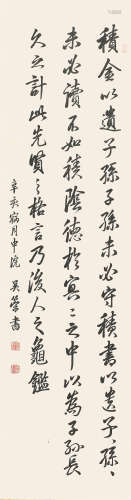 積金以遺子孫子孫未必守積書以遺子孫〻
未必讀不如積陰德於冥〻之中以為子孫長
久之計此先賢之格言乃後人之龜鑑
辛亥病月申浣 吳肇書